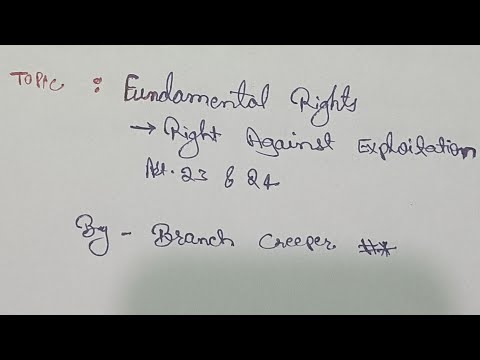 TOPIC : Fundamental Rights
→ Right Against Exploitation
Art. 23 & 24
By - Branch Creeper